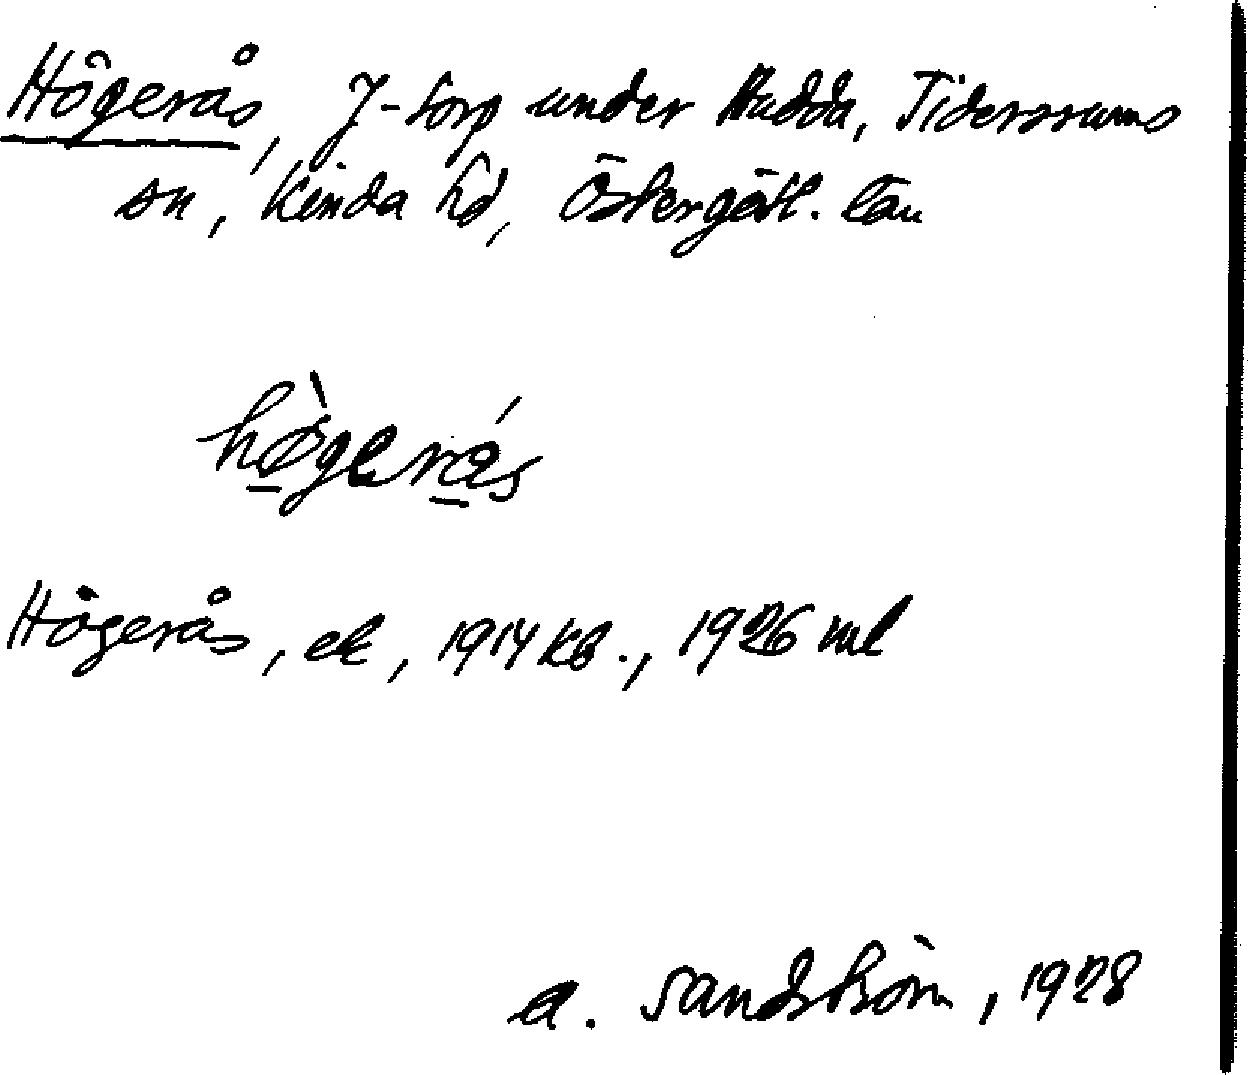 Högerås, J-torp under Hudda, Tidersrums
sn, Kinda hd, Östergötl. län
hø̀gerás
Högerås, ek, 1914 kb., 1926 ml
A. Sandström, 1928